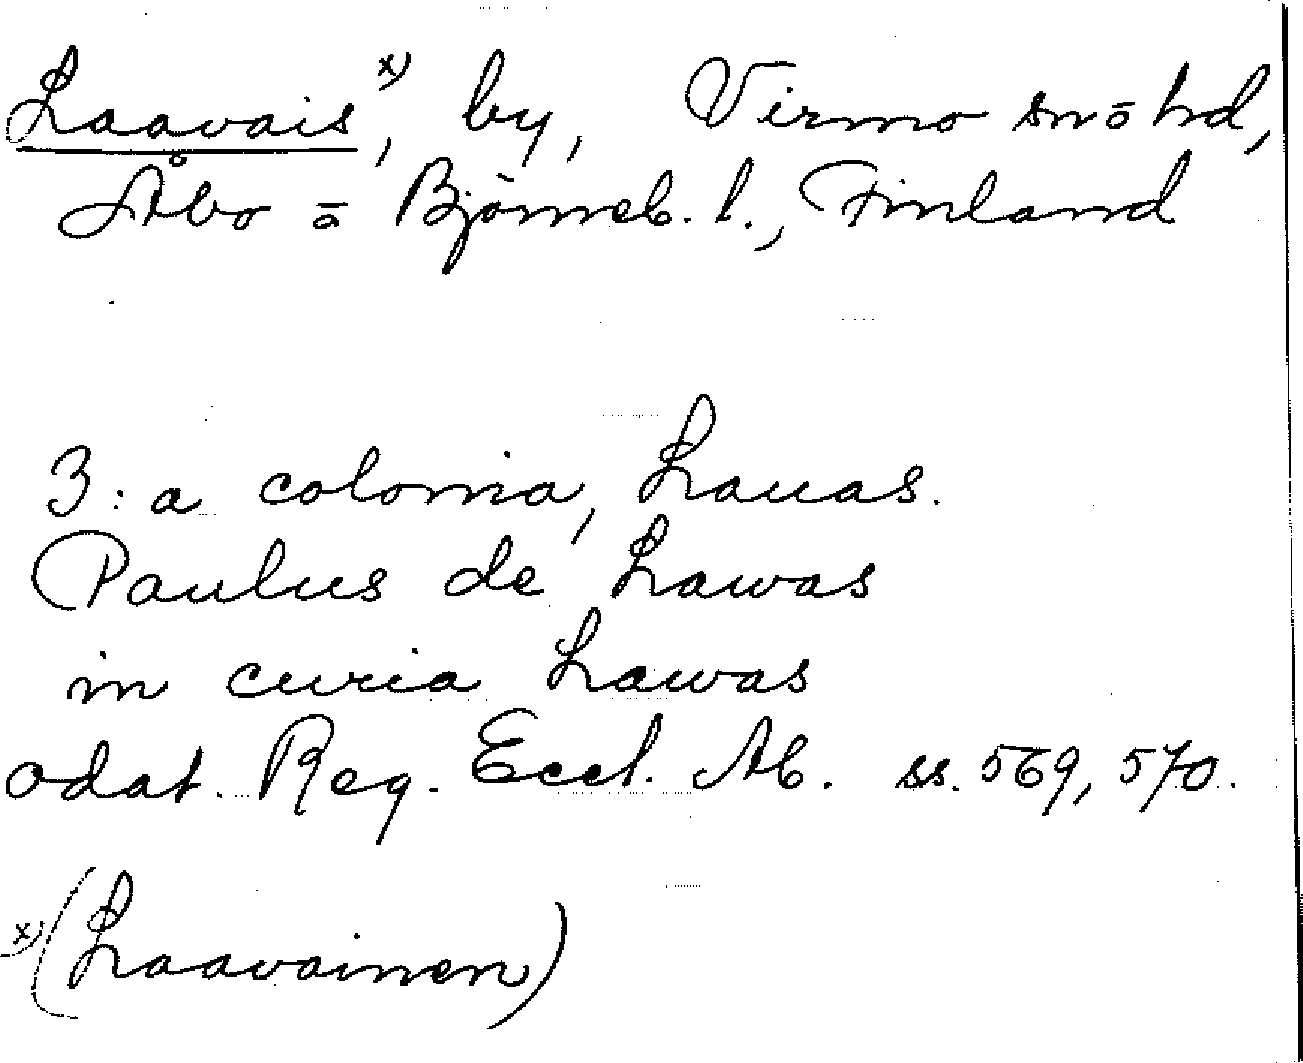 Laavais x), by, Virmo sn o hd,
Åbo o Björneb. l., Finland
3: a colonia, Lauas.
Paulus de Lawas
in curia Lawas
odat. Reg. Eccl. Ab. ss. 569, 570.
x) (Laavainen)